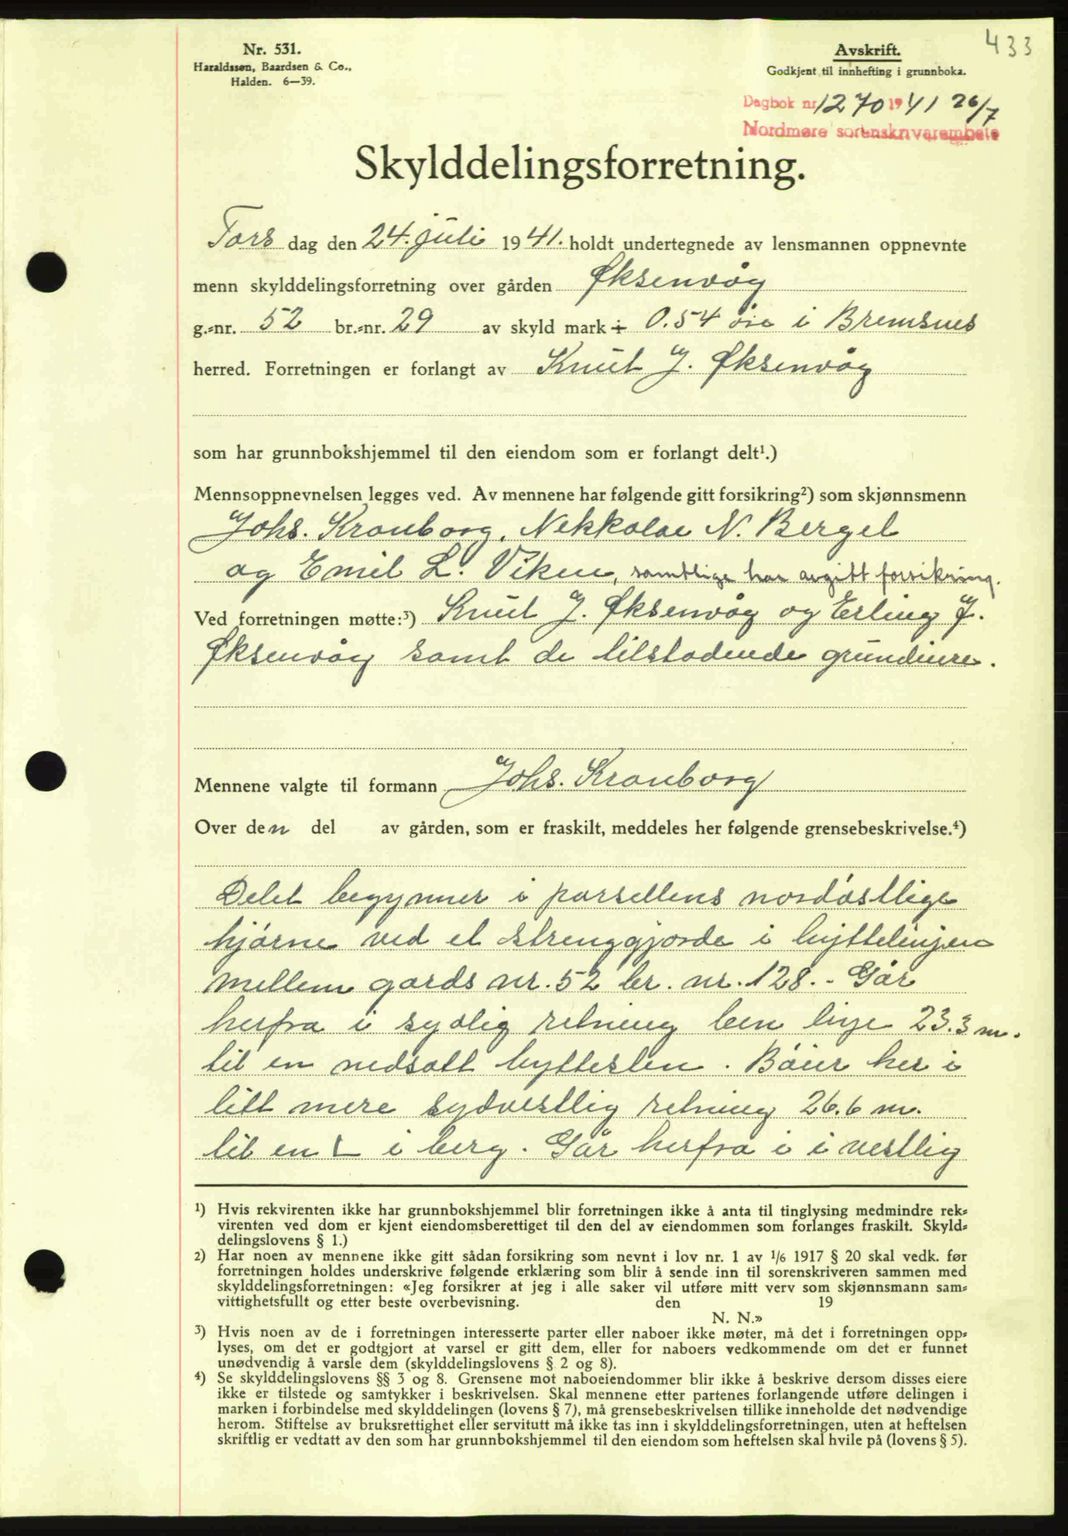 433
Nr. 531.
Haraldssøn, Baardsen & Co.,
Halden. 6—39.
Avskrift.
Godkjent til innhefting i grunnboka.
Dagbok nr. 1270 1941 26/7
Nordmøre sorenskriverembete
Skylddelingsforretning.
Tors dag den 24. juli 1941. holdt undertegnede av lensmannen oppnevnte
menn skylddelingsforretning over gården Øksenvåg
g.-nr. 52 br.-nr. 29 av skyld mark ÷ 0.54 øre i Bremsnes
herred. Forretningen er forlangt av Knut J. Øksenvåg
som har grunnbokshjemmel til den eiendom som er forlangt delt¹.)
Mennsoppnevnelsen legges ved. Av mennene har følgende gitt forsikring²) som skjønnsmenn
Johs. Kranborg, Nekkolae N. Bergel
og Emil L. Viken, samtlige har avgitt forsikring.
Ved forretningen møtte:³) Knut J. Øksenvåg og Erling J.
Øksenvåg samt de tilstødende grundeiere.
Mennene valgte til formann Johs. Kranborg
Over den del av gården, som er fraskilt, meddeles her følgende grensebeskrivelse.⁴)
Delet begynner i parsellens nordöstlige
hjörne ved et strenggjerde i byttelinjen
mellem gards nr. 52 br. nr. 128. - Går
herfra i sydlig retning ben linje 23.3 m.
til en nedsatt byttesten. Böier her i
litt mere sydvestlig retning 26.6 m.
til en L i berg. Går herfra i i vestlig
¹) Hvis rekvirenten ikke har grunnbokshjemmel blir forretningen ikke å anta til tinglysing medmindre rek-
virenten ved dom er kjent eiendomsberettiget til den del av eiendommen som forlanges fraskilt. Skyld-
delingslovens § 1.)
²) Har noen av mennene ikke gitt sådan forsikring som nevnt i lov nr. 1 av 1/6 1917 § 20 skal vedk. før
forretningen holdes underskrive følgende erklæring som blir å sende inn til sorenskriveren sammen med
skylddelingsforretningen: «Jeg forsikrer at jeg i alle saker vil utføre mitt verv som skjønnsmann sam-
vittighetsfullt og etter beste overbevisning. den 19
N. N.»
³) Hvis noen av de i forretningen interesserte parter eller naboer ikke møter, må det i forretningen opp-
lyses, om det er godtgjort at varsel er gitt dem, eller for naboers vedkommende om det er funnet
unødvendig å varsle dem (skylddelingslovens § 2 og 8).
⁴) Se skylddelingslovens §§ 3 og 8. Grensene mot naboeiendommer blir ikke å beskrive dersom disses eiere
ikke er tilstede og samtykker i beskrivelsen. Skal mennene etter partenes forlangende utføre delingen i
marken i forbindelse med skylddelingen (lovens § 7), må grensebeskrivelsen tillike inneholde det nødvendige
herom. Stiftelse av bruksrettighet eller servitutt må ikke tas inn i skylddelingsforretningen, uten at heftelsen
skriftlig er vedtatt av den som har grunnbokshjemmel til den eiendom som heftelsen skal hvile på (lovens § 5).